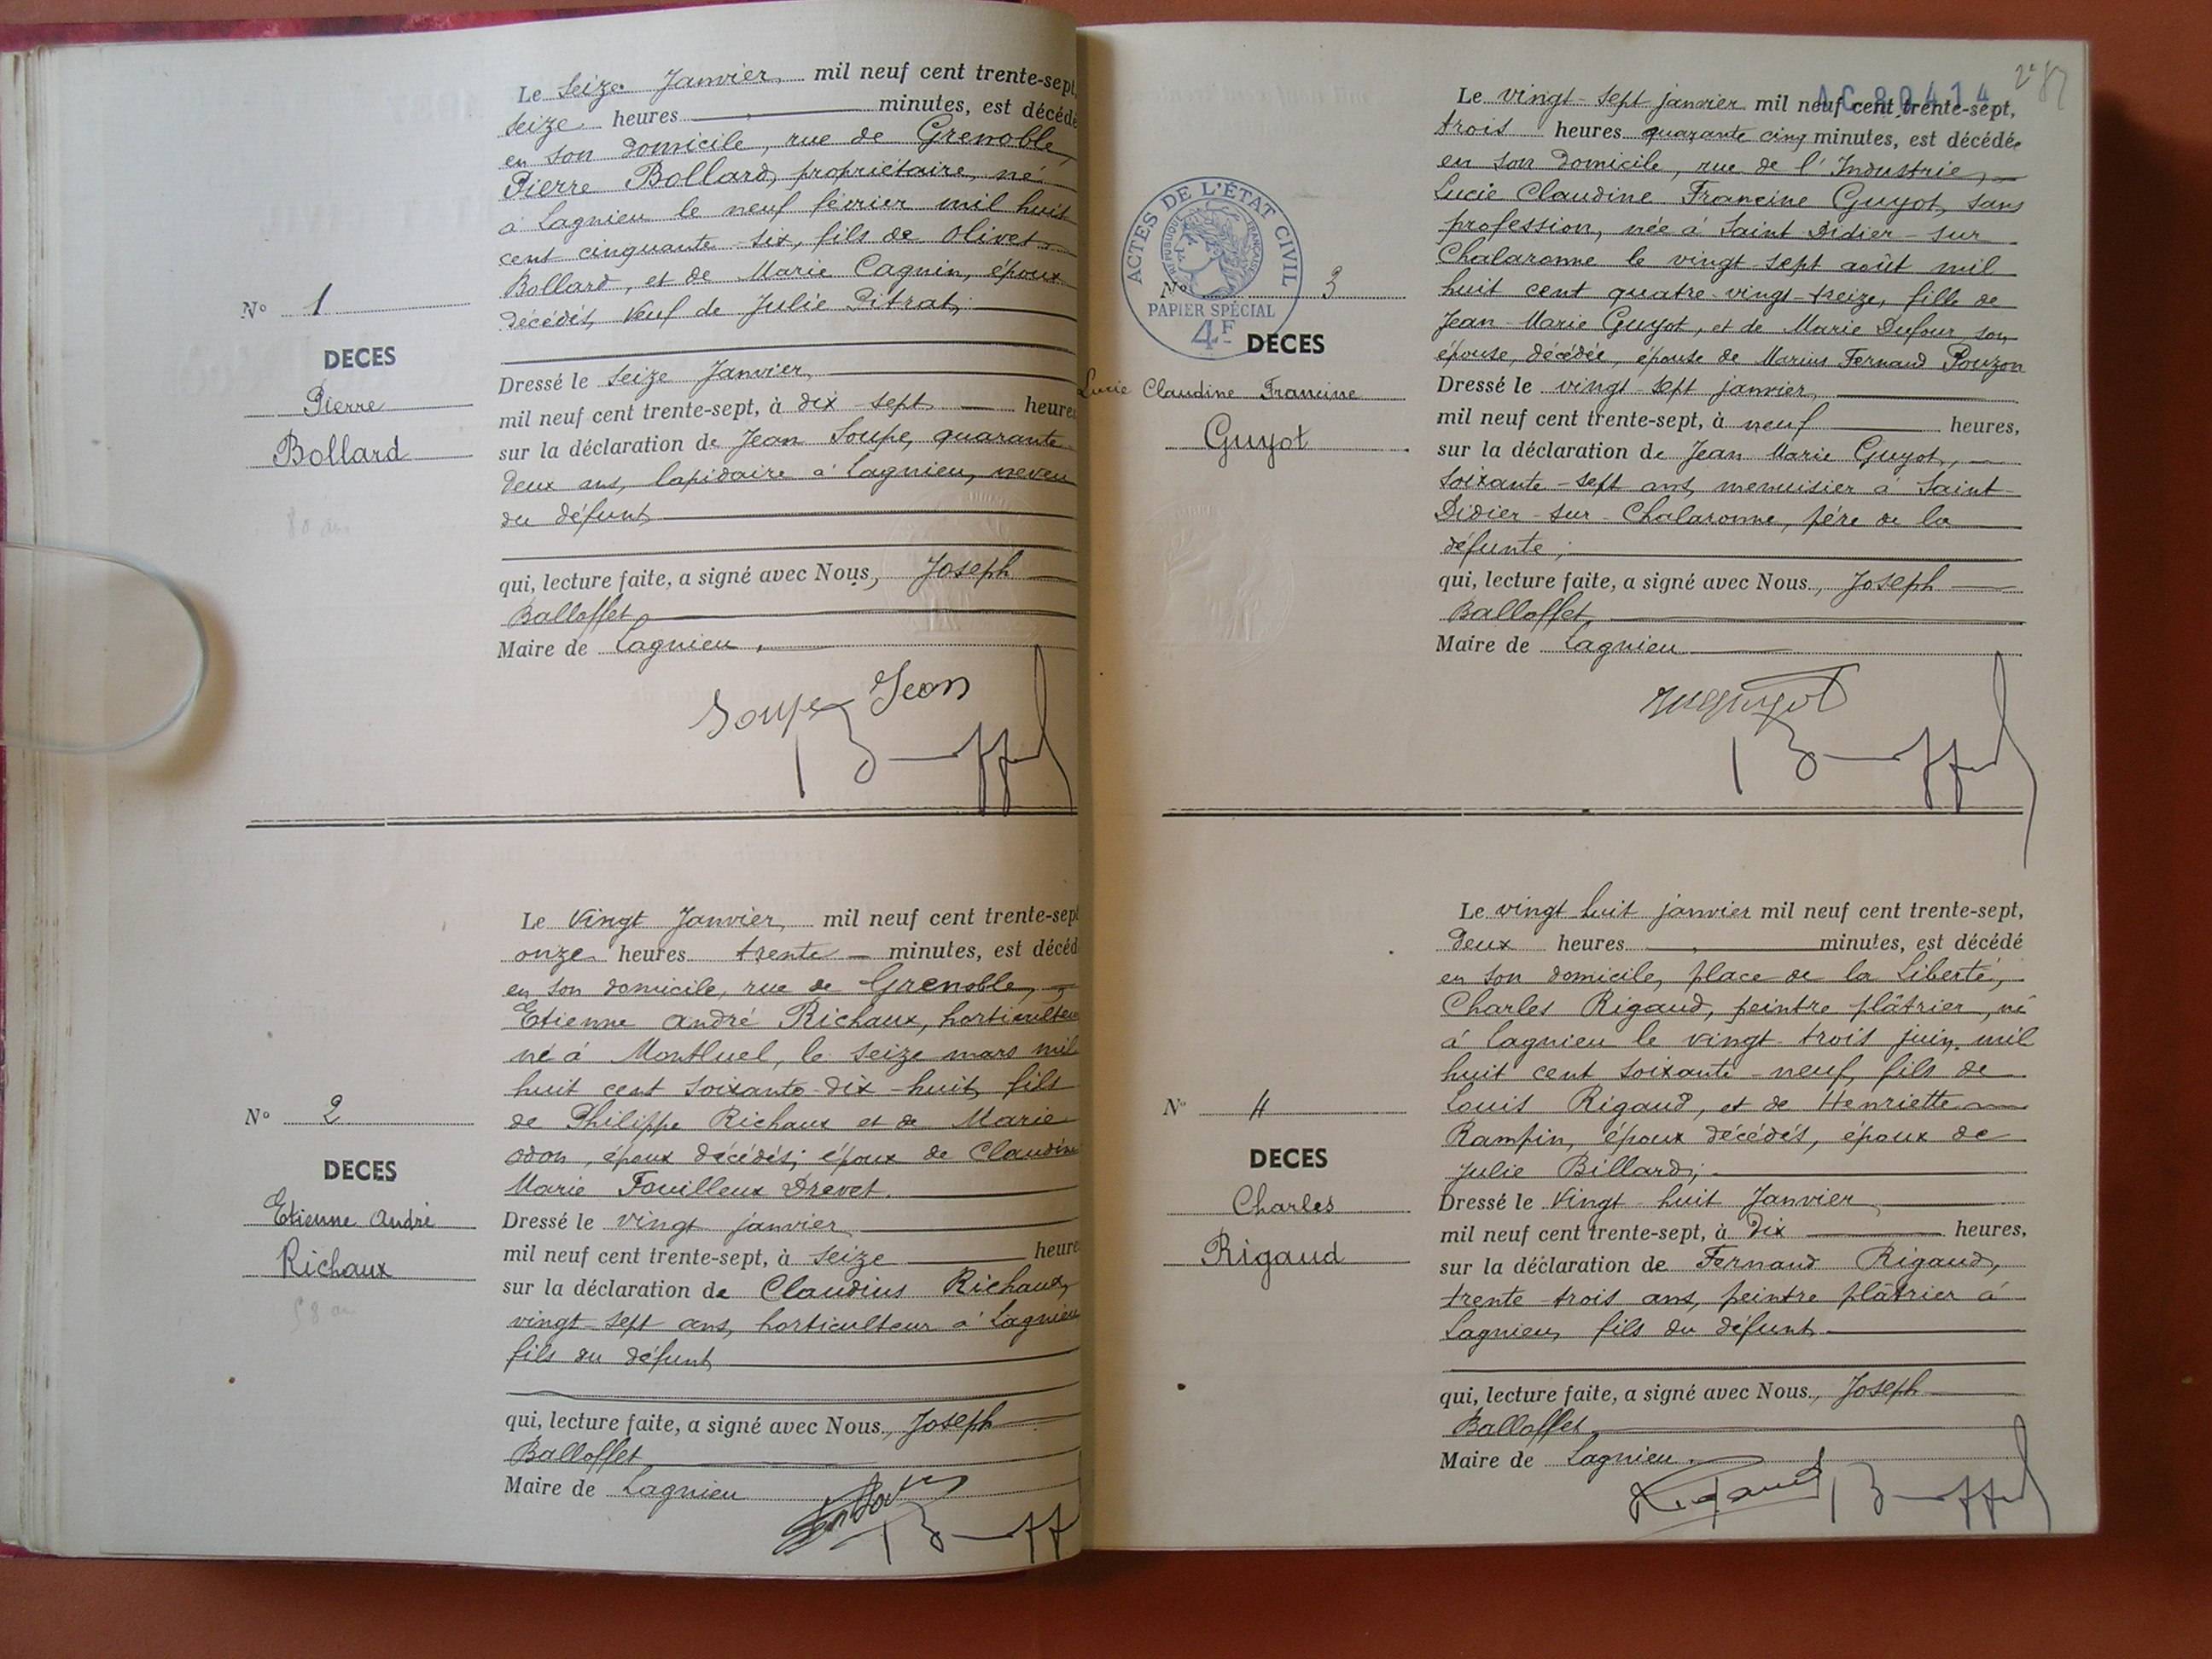 Le seize Janvier, mil neuf cent trente-sept,
seize heures minutes, est décédé
en son domicile, rue de Grenoble,
Pierre Bollard, propriétaire, né
à Lagnieu le neuf février mil huit
cent cinquante-six, fils de Olivet
Bollard, et de Marie Cagnin, époux
décédés, veuf de Julie Pitrat;
N° 1
DECES
Pierre
Bollard
80 ans
Dressé le seize Janvier,
mil neuf cent trente-sept, à dix-sept heures
sur la déclaration de Jean Soupe, quarante
deux ans, lapidaire à Lagnieu, neveu
du défunt
qui, lecture faite, a signé avec Nous, Joseph
Balloffet,
Maire de Lagnieu,
Soupe Jean
Le vingt Janvier, mil neuf cent trente-sept
onze heures trente minutes, est décéd
en son domicile, rue de Grenoble,
Etienne André Richaux, horticulteur
né à Montluel, le seize mars mil
huit cent soixante-dix-huit, fils
de Philippe Richaux et de Marie
Odon, époux décédés; époux de Claudine
Marie Fouilleux Drevet.
N° 2
DECES
Etienne André
Richaux
58 ans
Dressé le vingt janvier
mil neuf cent trente-sept, à seize heure
sur la déclaration de Claudius Richaux,
vingt-sept ans, horticulteur à Lagnieu
fils du défunt
qui, lecture faite, a signé avec Nous, Joseph
Balloffet
Maire de Lagnieu
AC 80414
Le vingt-sept janvier mil neuf cent trente-sept,
trois heures quarante cinq minutes, est décédée
en son domicile, rue de l'Industrie,
Lucie Claudine Francine Guyot, sans
profession, née à Saint Didier-sur
Chalaronne le vingt-sept août mil
huit cent quatre-vingt-treize, fille de
Jean-Marie Guyot, et de Marie Dufour son
épouse, décédée, épouse de Marius Fernand Pouzon
ACTES DE L'ÉTAT CIVIL
RÉPUBLIQUE FRANÇAISE
PAPIER SPÉCIAL
4F
N° 3
DECES
Lucie Claudine Francine
Guyot
Dressé le vingt-sept janvier,
mil neuf cent trente-sept, à neuf heures,
sur la déclaration de Jean Marie Guyot,
soixante-sept ans, menuisier à Saint-
Didier-sur-Chalaronne, père de la
défunte;
qui, lecture faite, a signé avec Nous, Joseph
Balloffet,
Maire de Lagnieu
JMGuyot
Le vingt huit janvier mil neuf cent trente-sept,
deux heures minutes, est décédé
en son domicile, place de la Liberté,
Charles Rigaud, peintre plâtrier, né
à Lagnieu le vingt-trois juin mil
huit cent soixante-neuf, fils de
Louis Rigaud, et de Henriette
Rampin, époux décédés, époux de
Julie Billard;
N° 4
DECES
Charles
Rigaud
Dressé le vingt-huit Janvier,
mil neuf cent trente-sept, à dix heures,
sur la déclaration de Fernand Rigaud,
trente-trois ans, peintre plâtrier à
Lagnieu, fils du défunt
qui, lecture faite, a signé avec Nous, Joseph
Balloffet,
Maire de Lagnieu.
Rigaud